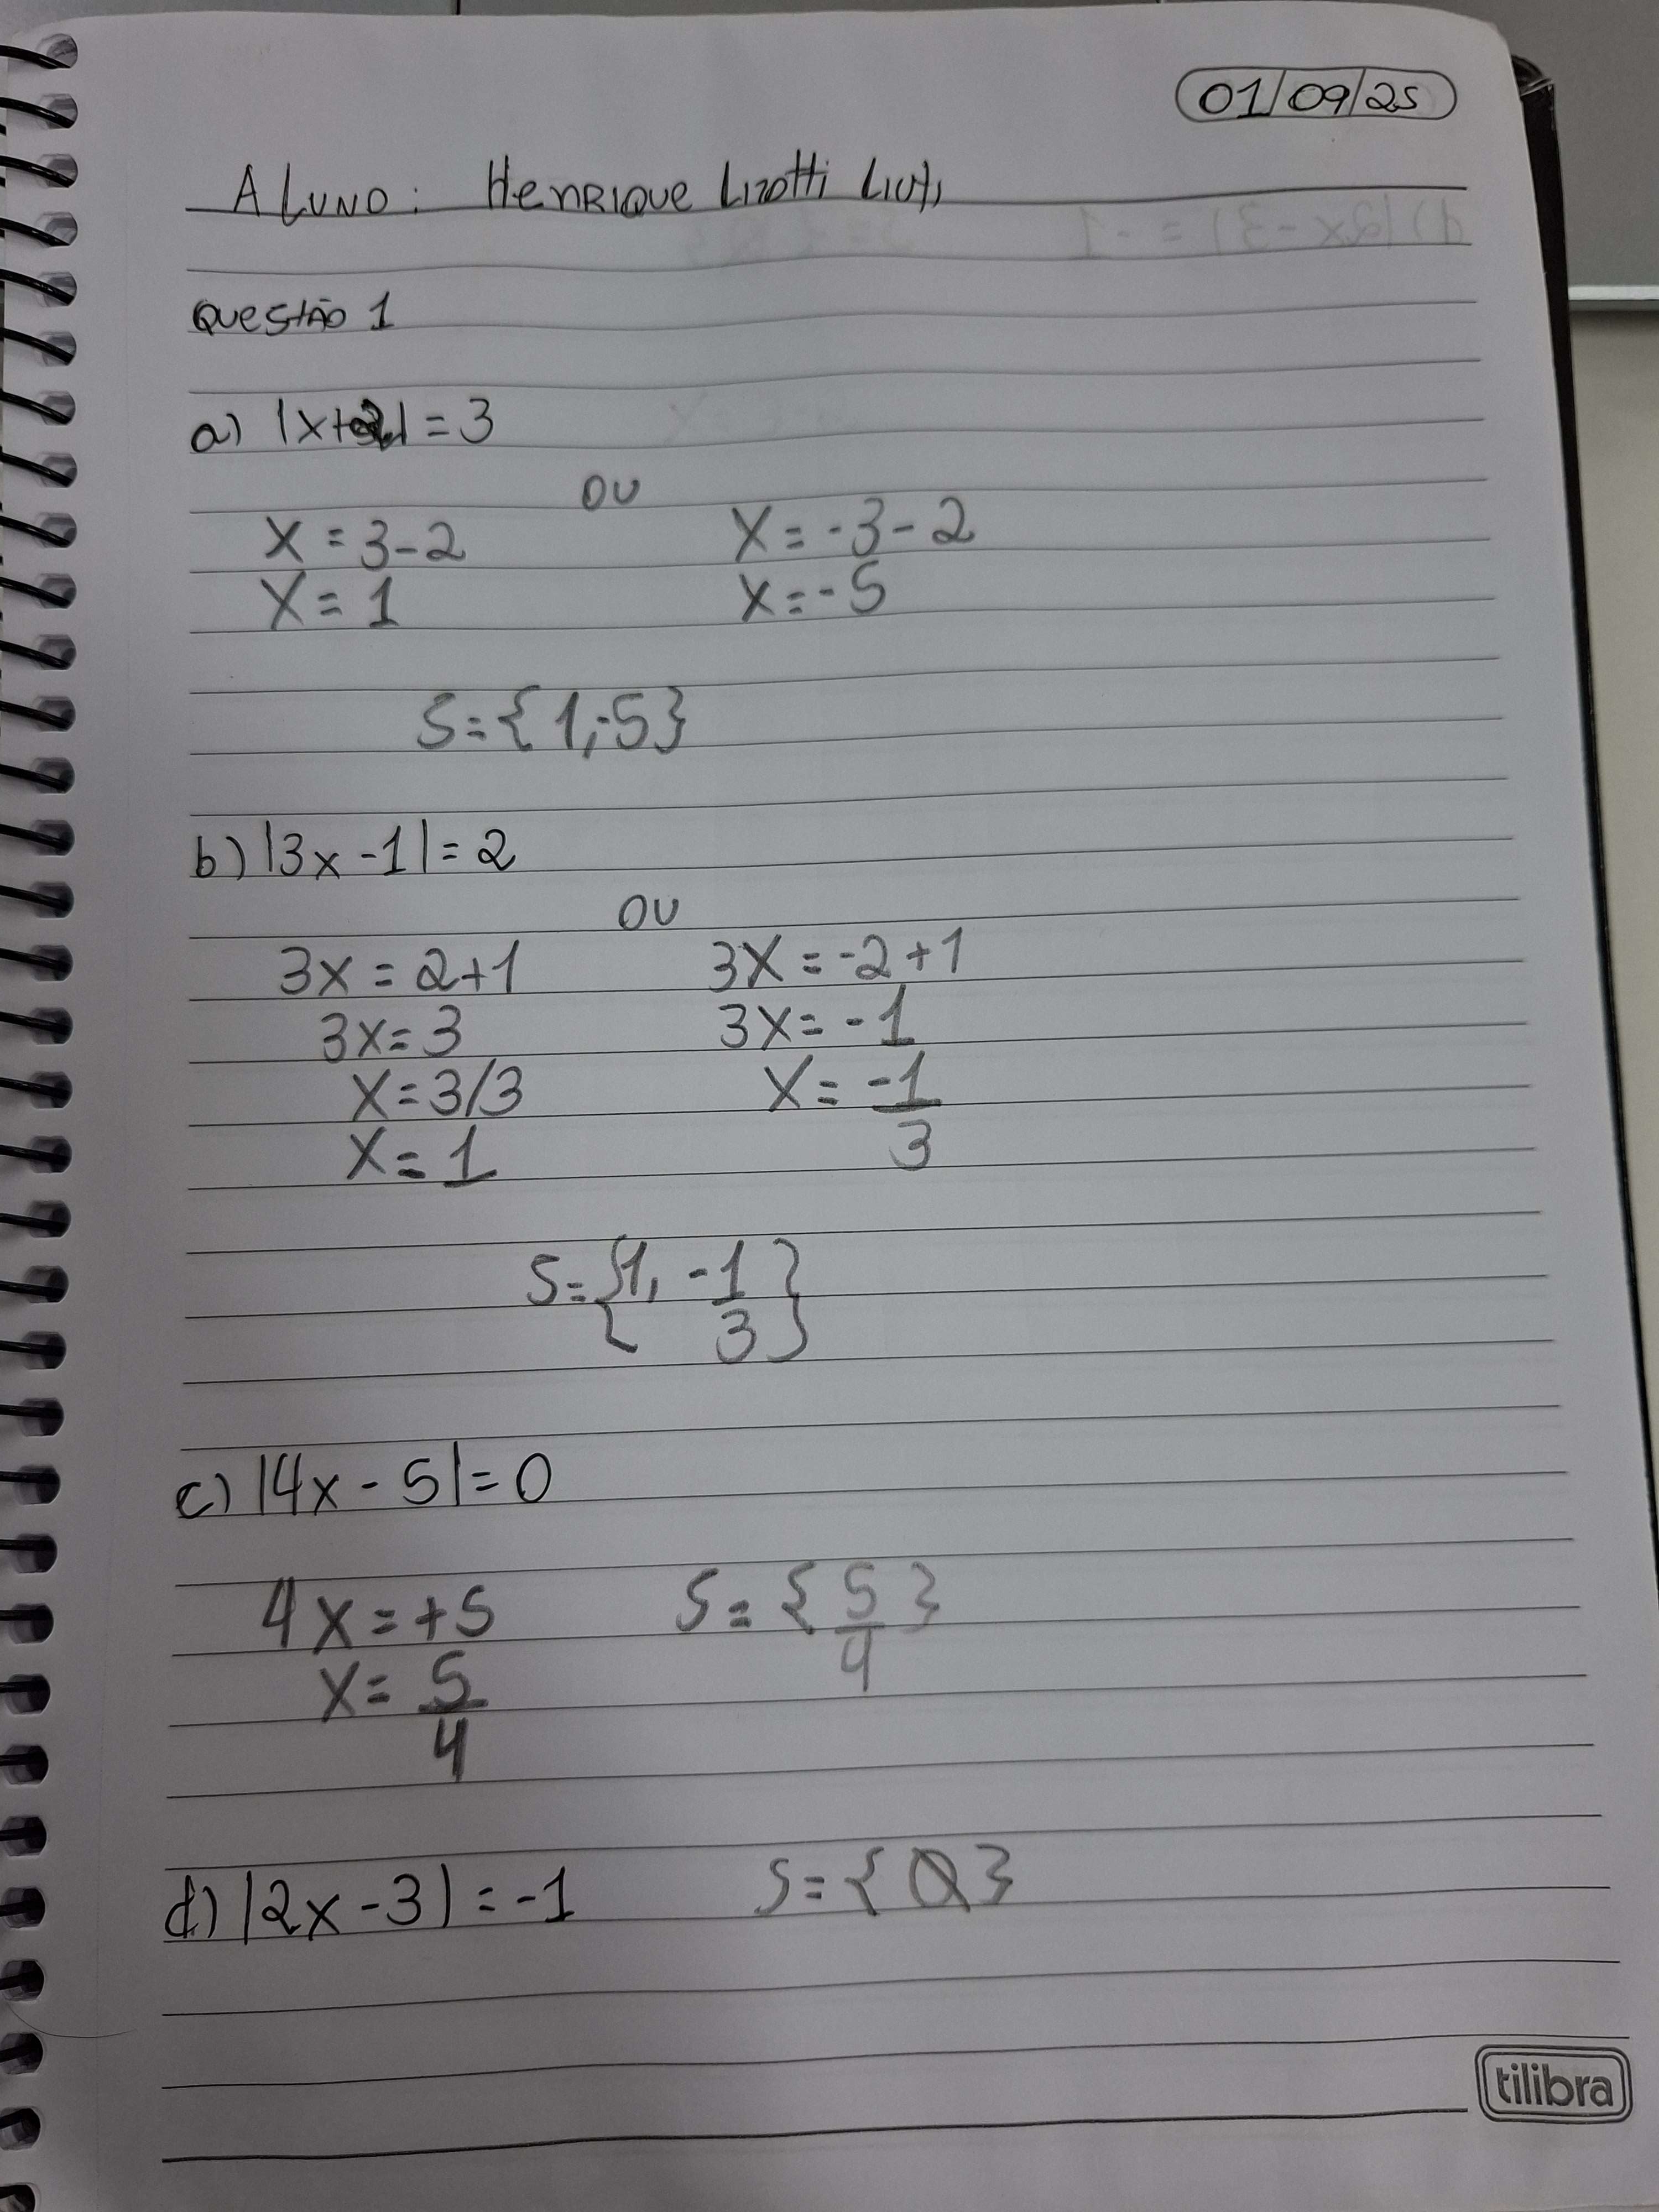 01/09/25
ALUNO: HENRIQUE Lizotti
QUESTÃO 1
a) |x+2| = 3
OU
X = 3-2 X = -3-2
X = 1 X = -5
S = {1,-5}
b) |3x -1| = 2
OU
3x = 2+1 3X = -2+1
3x = 3 3X = -1
X = 3/3 X = -1/3
X = 1
S = {1, -1/3}
c) |4x - 5| = 0
4X = +5 S = {5/4}
X = 5/4
d) |2x -3| = -1 S = {∅}
tilibra